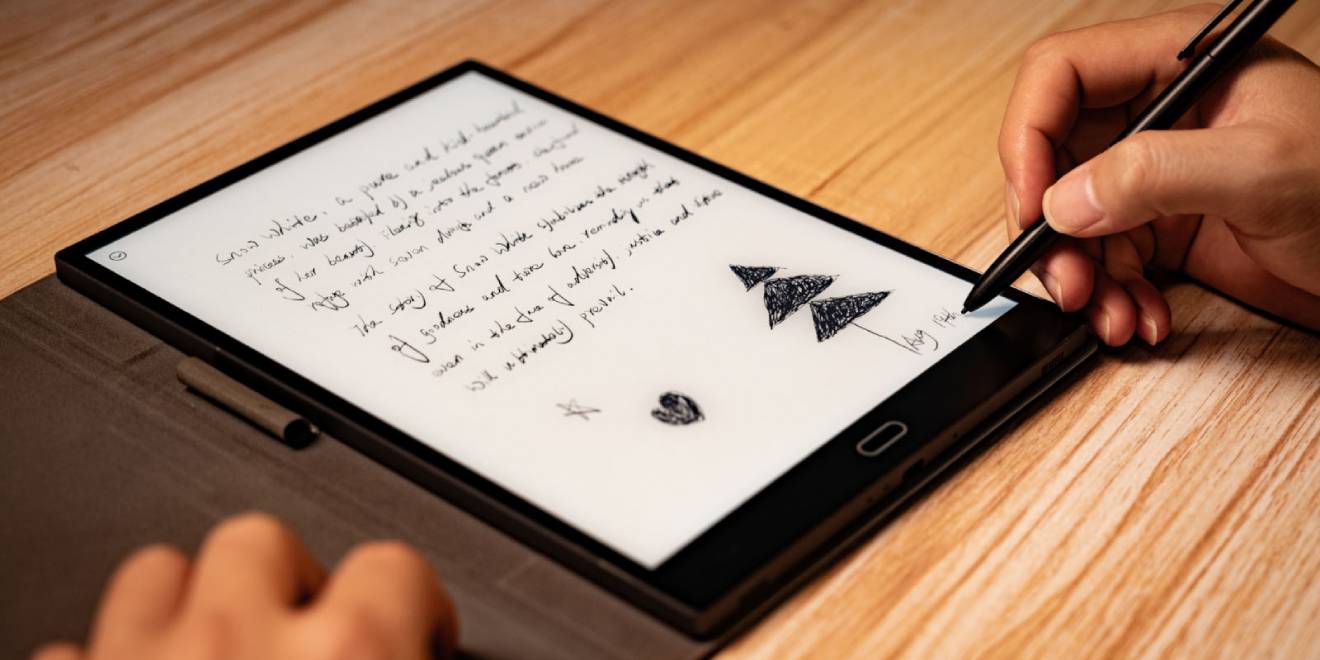 Snow White, a pure and kind-hearted
princess, was by a queen
of her beauty. Fleeing into the forest,
refuge with seven and a new home
The story of Snow White the strength
of goodness and true love. us that
even in the face of adversity, justice and
will ultimately prevail.
Aug